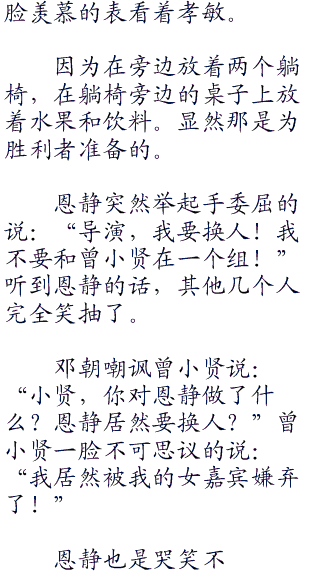 脸羡慕的表看着孝敏。
因为在旁边放着两个躺
椅，在躺椅旁边的桌子上放
着水果和饮料。显然那是为
胜利者准备的。
恩静突然举起手委屈的
说：“导演，我要换人！我
不要和曾小贤在一个组！”
听到恩静的话，其他几个人
完全笑抽了。
邓朝嘲讽曾小贤说：
“小贤，你对恩静做了什
么？恩静居然要换人？”曾
小贤一脸不可思议的说：
“我居然被我的女嘉宾嫌弃
了！”
恩静也是哭笑不